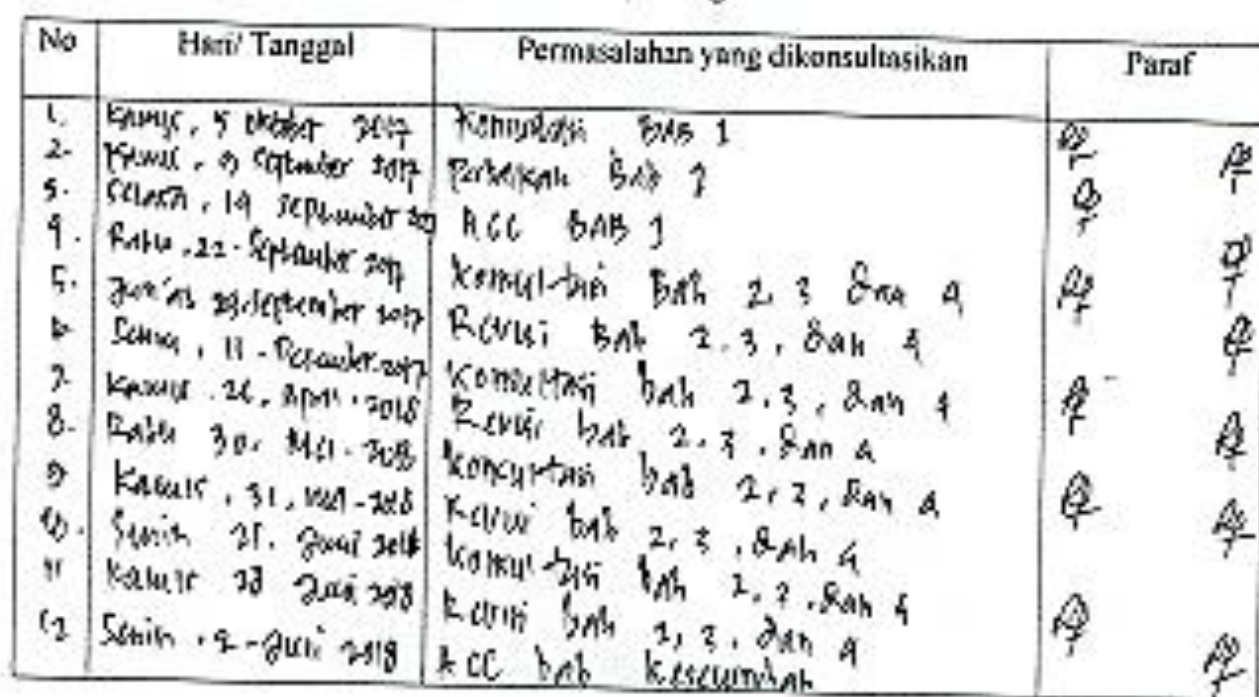 No Hari/ Tanggal Permasalahan yang dikonsultasikan Paraf
1. Kamis, 5 Oktober 2017 Konsultasi BAB 1
2. Kamis, September 2017 Perbaikan Bab 1
3. Selasa, 19 September ACC BAB 1
4. Rabu, 22 - September 2017 Konsultasi Bab 2, 3 dan 4
5. Jum'at 29 September 2017 Revisi Bab 2, 3, dan 4
6. Senin, 11 - Desember 2017 Konsultasi bab 2, 3, dan 4
7. Kamis 26, April 2018 Revisi bab 2, 3, dan 4
8. Rabu 30. Mei - 2018 Konsultasi bab 2, 3, dan 4
9 Kamis, 31, Mei - 2018 Revisi bab 2, 3, dan 4
10. Senin 25. Juni 2018 Konsultasi bab 2, 3, dan 4
11 Kamis 28 Juni 2018 Revisi bab 2, 3, dan 4
12 Senin, 2 - Juli 2018 ACC bab Keseluruhan